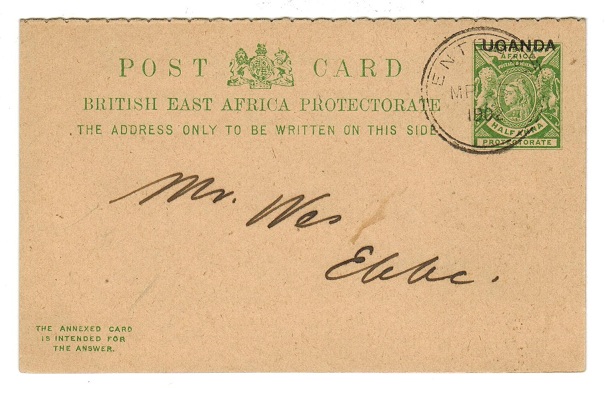 POST CARD
BRITISH EAST AFRICA PROTECTORATE
THE ADDRESS ONLY TO BE WRITTEN ON THIS SIDE
UGANDA
AFRICA
HALF ANNA
PROTECTORATE
ENT
1902
Mr. Wes
Ebbe.
THE ANNEXED CARD
IS INTENDED FOR
THE ANSWER.